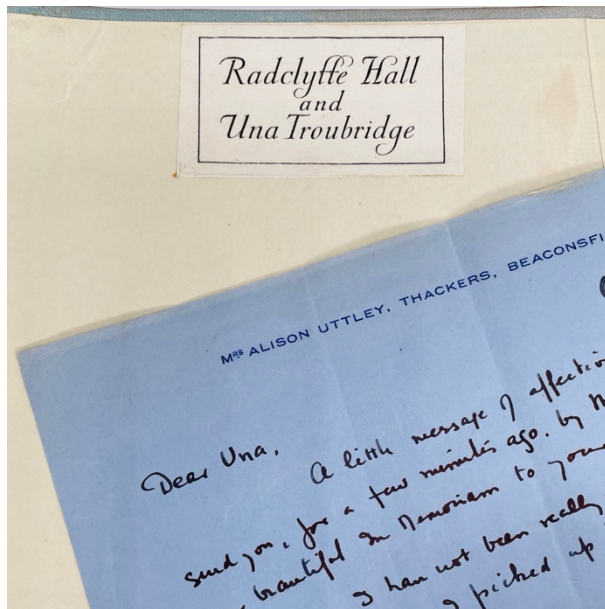 Radclyffe Hall
and
Una Troubridge
MRS ALISON UTTLEY, THACKERS, BEACONSFI
Dear Una,
A little message of affection
send you, for a few minutes ago, by M
beautiful In Memoriam to your
I han not been really
I picked up